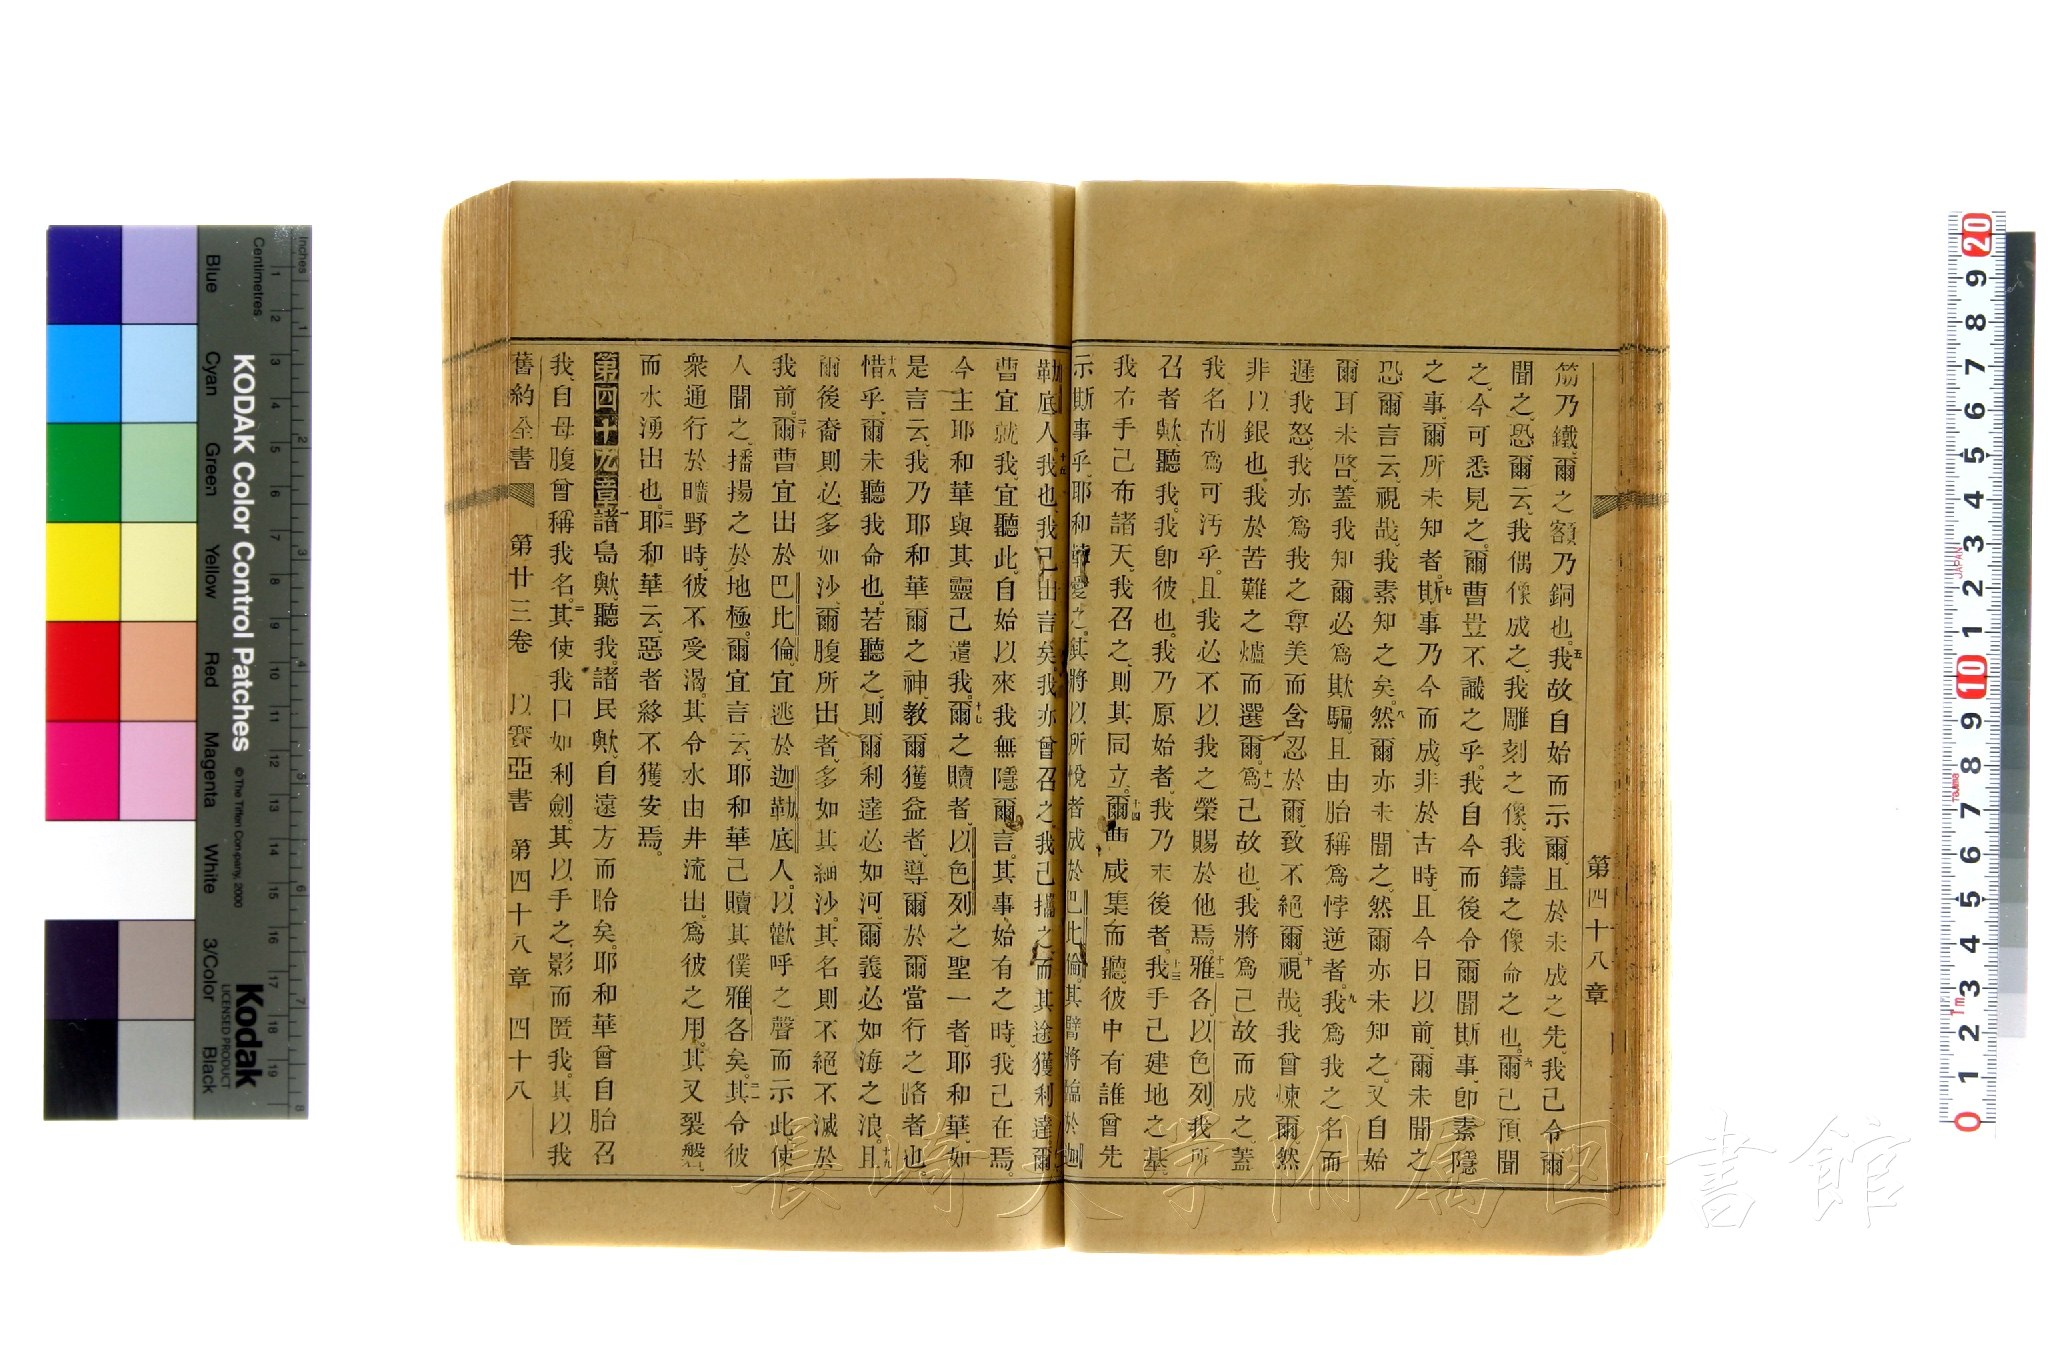 第四十八章
筋乃鐵、爾之額乃銅也。五我故自始而示爾、且於未成之先、我已令爾
聞之、恐爾云、我偶像成之、我雕刻之像、我鑄之像命之也。六爾已預聞
之、今可悉見之。爾曹豈不識之乎。我自今而後令爾聞斯事、卽素隱
之事、爾所未知者。七斯事乃今而成、非於古時、且今日以前、爾未聞之
恐爾言云、視哉、我素知之矣。八然爾亦未聞之、然爾亦未知之、又自始
爾耳未啓、蓋我知爾必爲欺騙、且由胎稱爲悖逆者。九我爲我之名而
遲我怒、我亦爲我之尊美而含忍於爾、致不絕爾。十視哉、我曾煉爾、然
非以銀也、我於苦難之爐而選爾。十一爲己故也、我將爲己故而成之、蓋
我名胡爲可汚乎。且我必不以我之榮賜於他焉。十二雅各、以色列、我所
召者歟、聽我。我卽彼也。我乃原始者、我乃末後者。十三我手已建地之基、
我右手已布諸天、我召之、則其同立。十四爾曹咸集而聽、彼中有誰曾先
示斯事乎、耶和華愛之、其將以所悅者成於巴比倫、其臂將臨於迦
勒底人。十五我也、我已出言矣、我亦曾召之、我已攜之、而其途獲利達。爾
曹宜就我、宜聽此。自始以來我無隱爾言。其事始有之時、我已在焉。
今主耶和華與其靈已遣我。十七爾之贖者、以色列之聖一者、耶和華、如
是言云、我乃耶和華爾之神、教爾獲益者、導爾於爾當行之路者也。
十八惜乎、爾未聽我命也。若聽之、則爾利達必如河、爾義必如海之浪。十九且
爾後裔則必多如沙、爾腹所出者、多如其細沙。其名則不絕不滅於
我前。二十爾曹宜出於巴比倫、宜逃於迦勒底人。以歡呼之聲而示此、使
人聞之、播揚之於地極。爾宜言云、耶和華已贖其僕雅各矣。二一其令彼
衆通行於曠野時、彼不受渴。其令水由井流出、爲彼之用。其又裂磐
而水湧出也。二二耶和華云、惡者終不獲安焉。
第四十九章 一諸島歟、聽我。諸民歟、自遠方而聆矣。耶和華曾自胎召
我、自母腹曾稱我名。二其使我口如利劍。其以手之影而匿我。其以我
舊約全書 第廿三卷 以賽亞書 第四十八章 四十八
KODAK Color Control Patches
© The Tiffen Company, 2000
Kodak
LICENSED PRODUCT
Inches
Centimetres
Blue
Cyan
Green
Yellow
Red
Magenta
White
3/Color
Black
長崎大学附属図書館